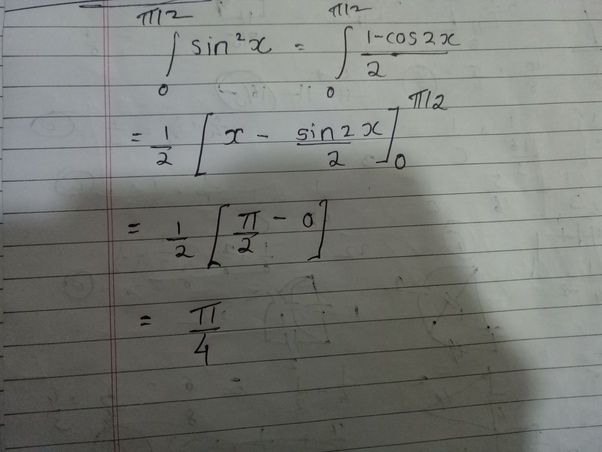 ∫₀^{π/2} sin²x = ∫₀^{π/2} (1-cos2x)/2
= 1/2 [x - sin2x/2]₀^{π/2}
= 1/2 [π/2 - 0]
= π/4